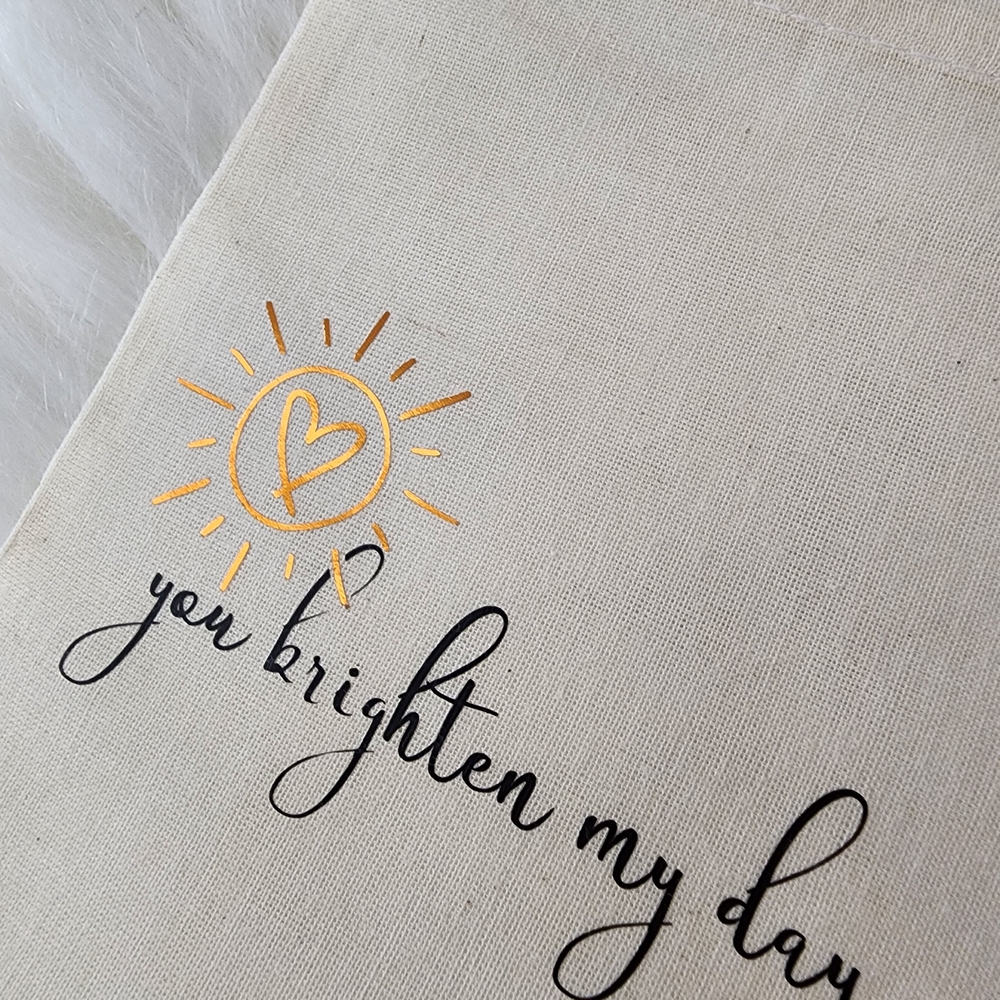 you brighten my day